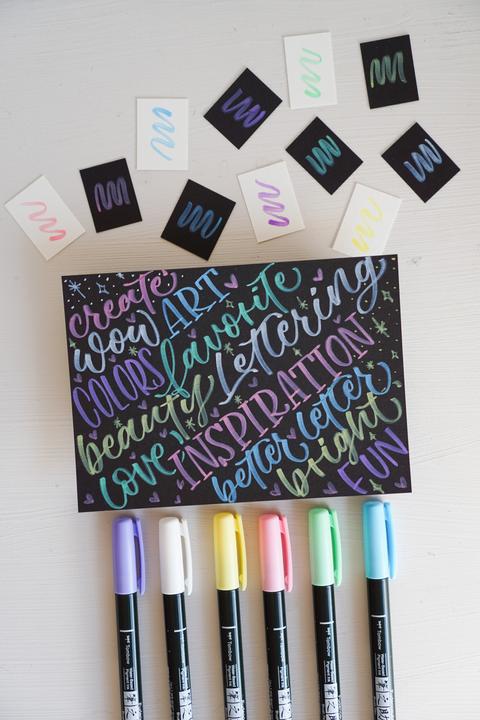 create
wow ART
COLORS favorite
beauty Lettering
love INSPIRATION
better letter
bright
FUN
Tombow
Tombow
Tombow
Tombow
Tombow